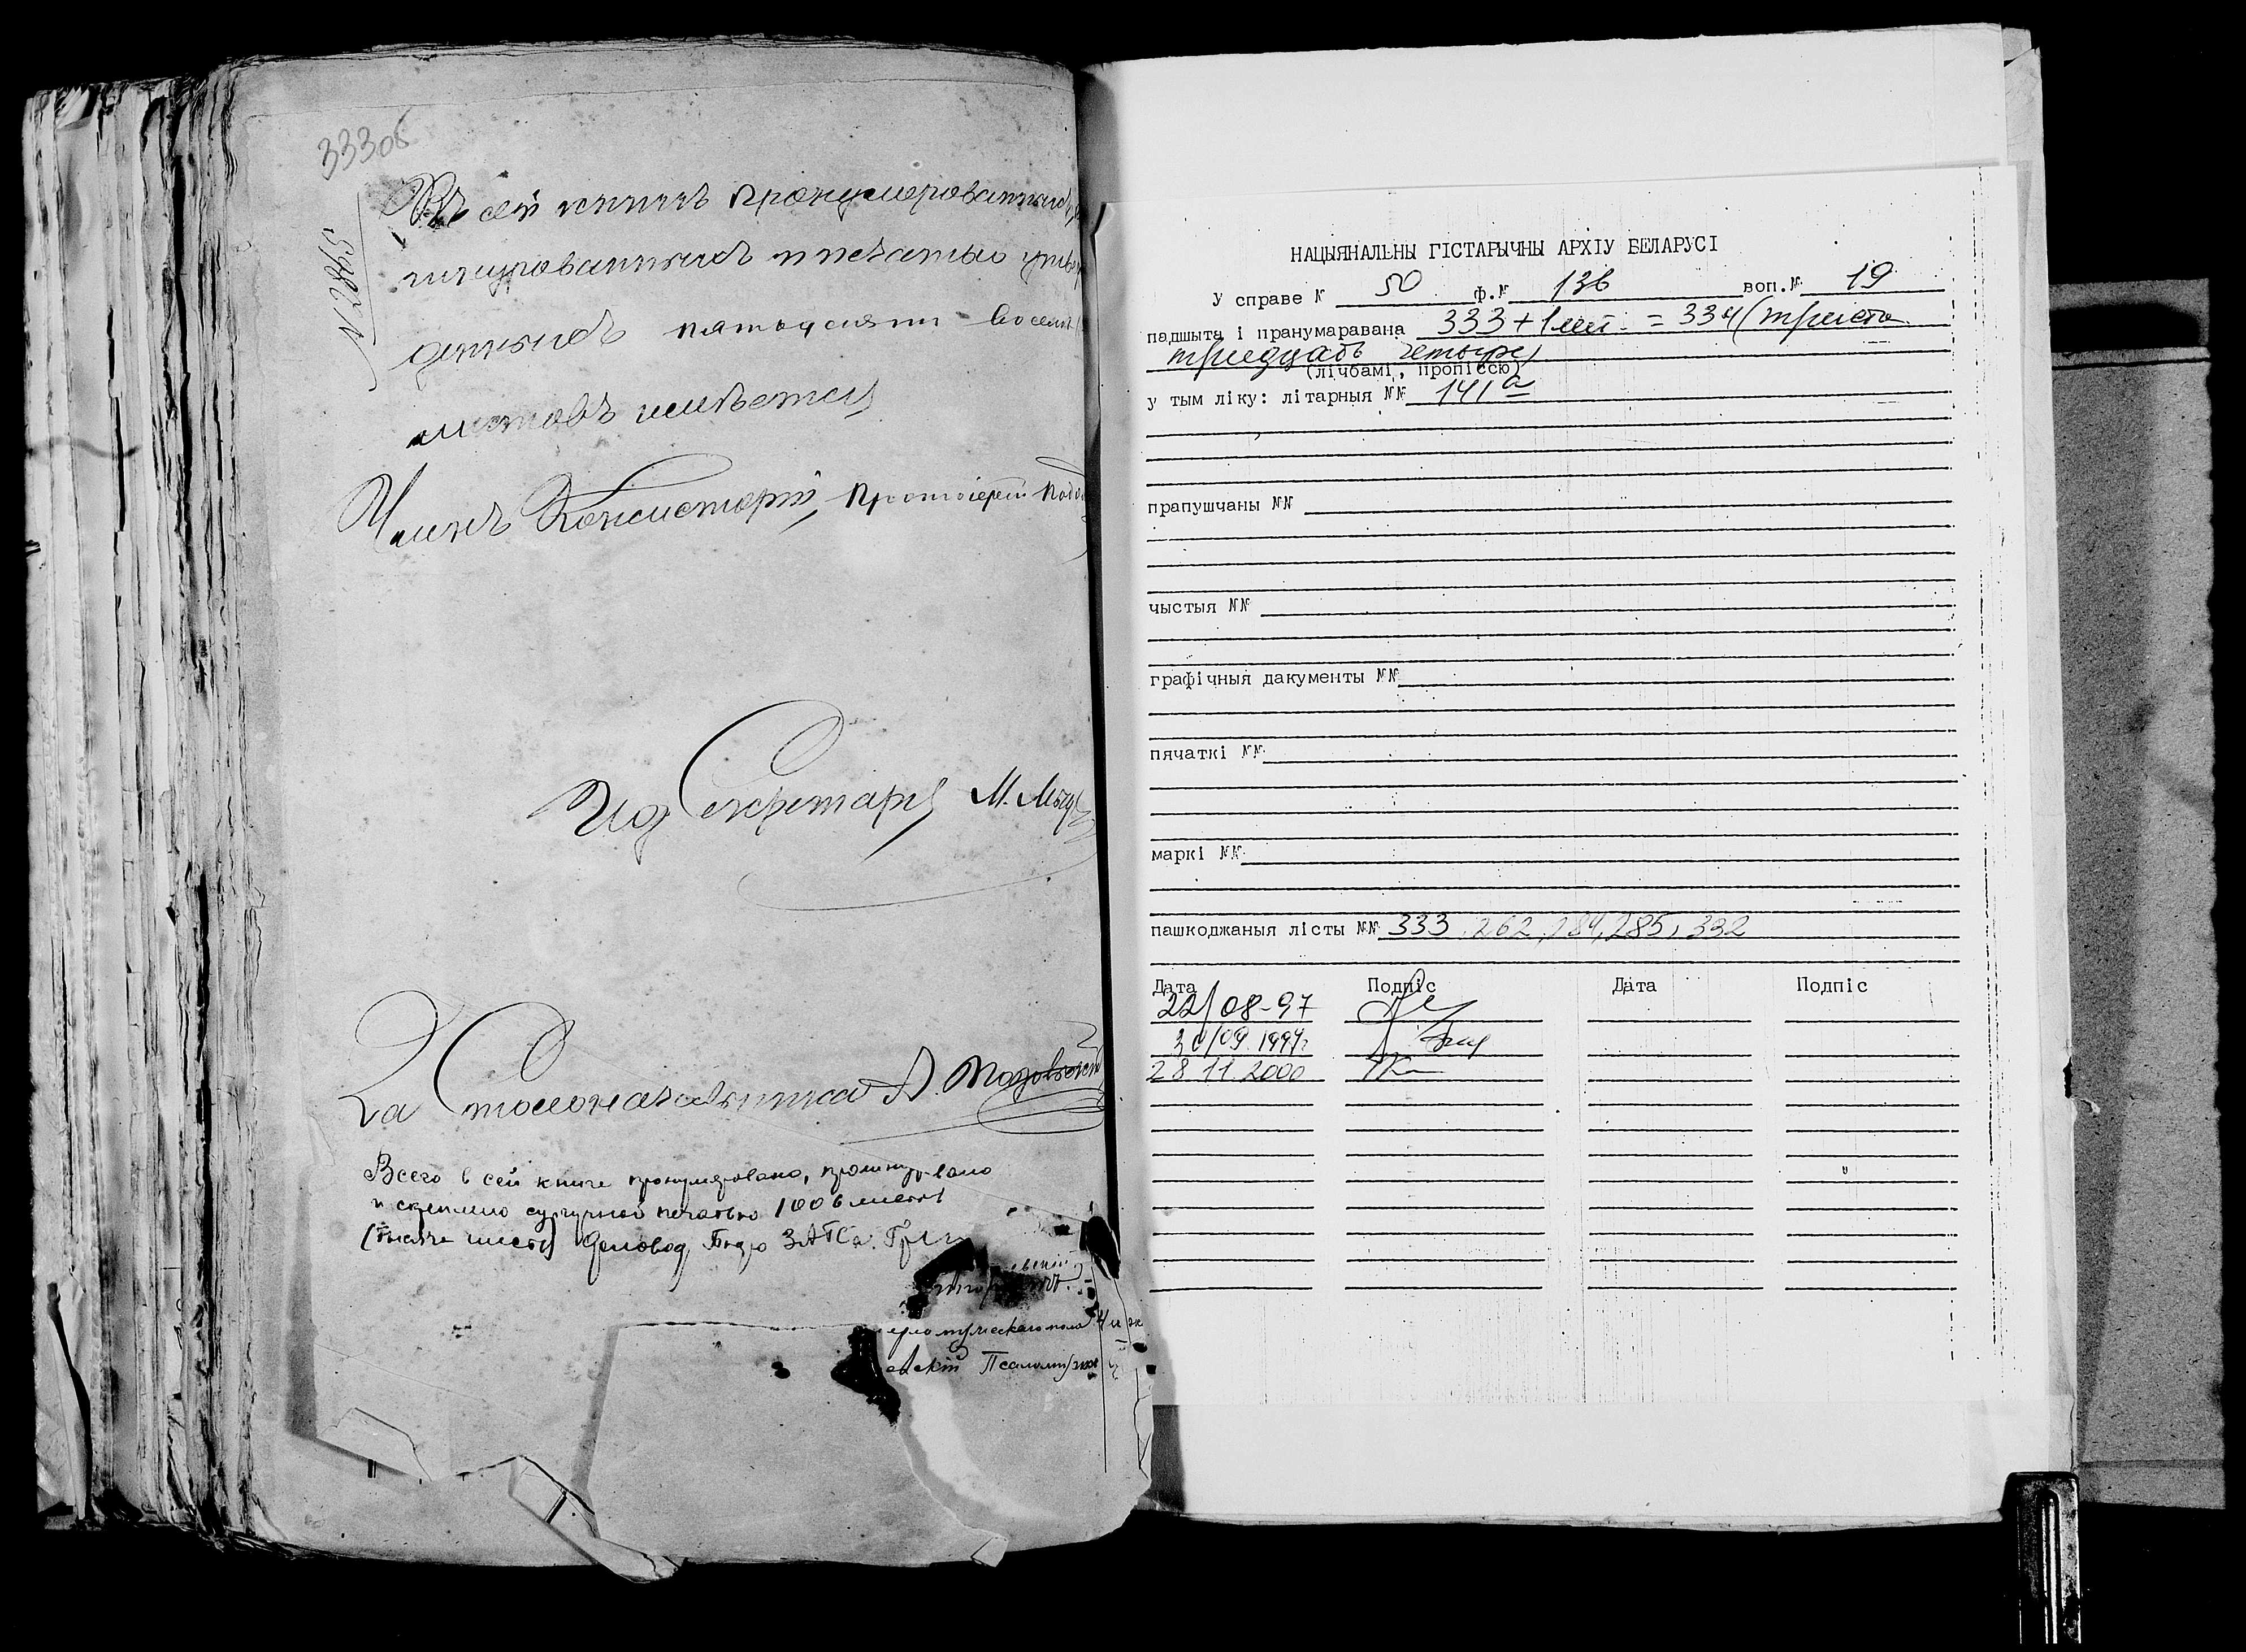 333об
№ 2845
Въ сей книгѣ пронумерованныхъ,
шнурованныхъ и печатью утвер
денныхъ пятьдесятъ восемь
листовъ имѣется
Членъ Консисторіи, Протоіерей
Ид Секретаря М.
За Столоначальника А.
Всего в сей книге пронумеровано, прошнуровано
и скреплено сургучной печатью 100 б листов
Деловод Бюро ЗАГСа
евскій
Псаломщик
НАЦЫЯНАЛЬНЫ ГІСТАРЫЧНЫ АРХІУ БЕЛАРУСІ
У справе № 50 ф.№ 136 воп.№ 19
падшыта і пранумаравана 333+1лит. = 334 (триста
тридцать четыре)
(лічбамі, пропіссю)
у тым ліку: літарныя №№ 141а
прапушчаны №№
чыстыя №№
графічныя дакументы №№
пячаткі №№
маркі №№
пашкоджаныя лісты №№ 333, 262, 284, 285, 332
Дата Подпіс Дата Подпіс
22/08-97
30/09.1997г
28.11.2000